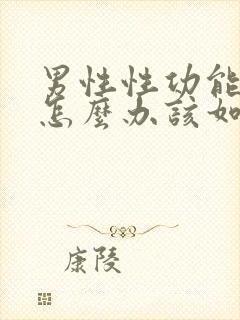 男性性功能
怎麼办該如
康陵